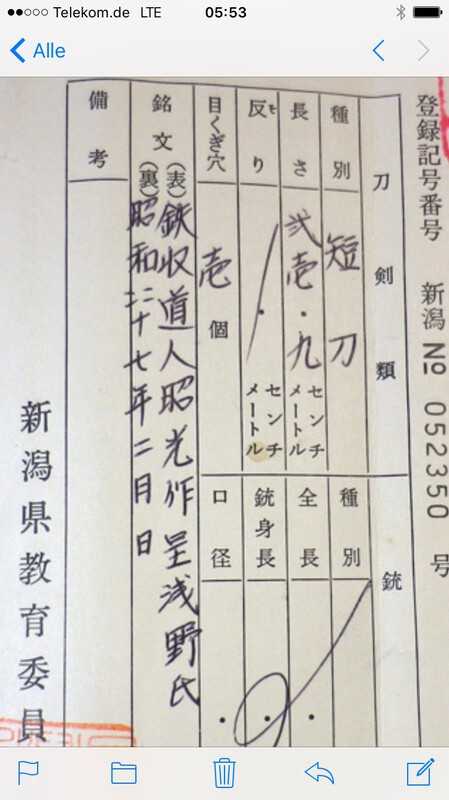 Telekom.de LTE 05:53
Alle
登録記号番号 新潟 № 052350 号
刀剣類
種別 短刀
長さ 弐壱・九 センチメートル
反り ・ センチメートル
目くぎ穴 壱個
銘文 (表) 鉄収道人昭光作 呈浅野氏
(裏) 昭和三十七年二月 日
備考
銃
種別
全長 ・
銃身長 ・
口径 ・
新潟県教育委員